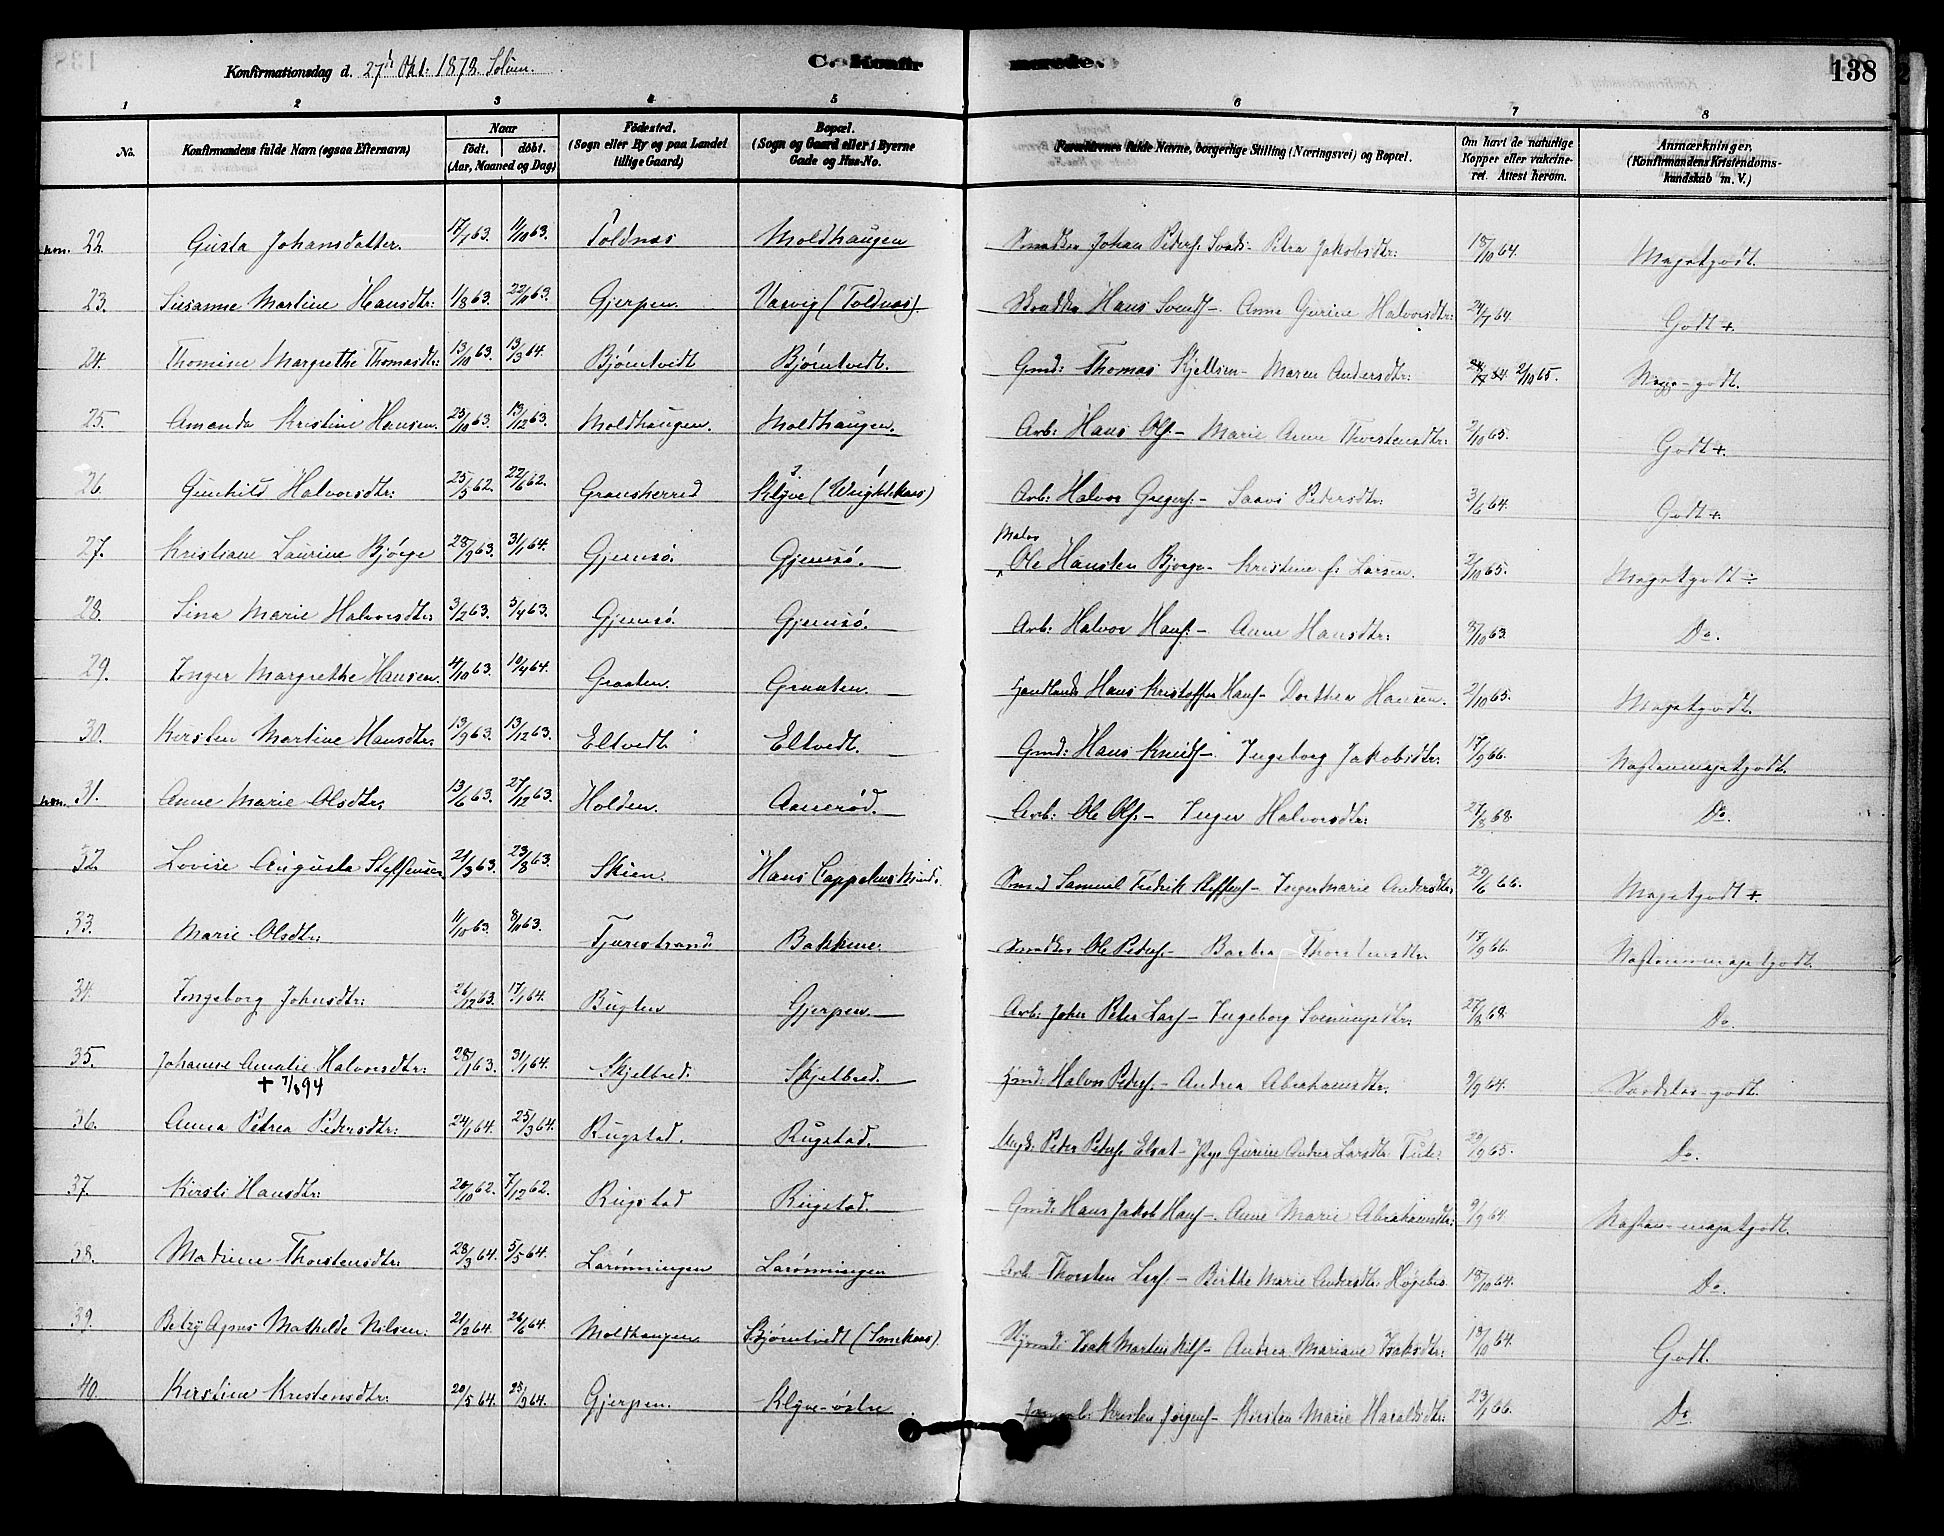 Konfirmationsdag d. 27d Okt. 1878 Solum.
C. Konfirmerede.
138
1 2 3 4 5 6 7 8
No. Konfirmandens fulde Navn (ogsaa Efternavn) Naar født. døbt. (Aar, Maaned og Dag) Fødested. (Sogn eller By og paa Landet tillige Gaard) Bopæl. (Sogn og Gaard eller i Byerne Gade og Hus-No. Forældrenes fulde Navne, borgerlige Stilling (Næringsvei) og Bopæl. Om havt de naturlige Kopper eller vakcineret. Attest herom. Anmærkninger, (Konfirmandens Kristendomskundskab m. V.)
22. Gusta Johansdatter. 17/1 63. 11/10 63. Toldnæs Moldhaugen Johan Peders: Petra Jakobsdtr: 18/10 64. Megetgodt.
23. Susanne Martine Hansdtr: 1/8 63. 22/11 63. Gjerpen. Vasvig (Toldnæs). Hans Svends - Anne Gurine Halvorsdtr: 24/7 64. Godt +
24. Thomine Margrethe Thomasdtr: 13/10 63. 13/3 64. Bjørntvedt Bjørntvedt. Gmd: Thomas Kjellsen - Maren Andersdtr: 2/10 65. Meget-godt.
25. Amanda Kristine Hansen. 23/10 63. 13/12 63. Moldhaugen. Moldhaugen. Arb: Hans Ols. - Marie Anne Thorstensdtr: 2/10 65. Godt +.
26. Gunhild Halvorsdtr: 25/5 62. 22/6 62. Gransherred Klyve Arb: Halvor Gregers: - Saavi Pedersdtr: 3/6 64. Godt +.
27. Kristiane Laurine Bjørge 28/9 63. 31/1 64. Gjemsø. Gjemsø. Maler Ole Hansten Bjørge - Kristine f: Larsen. 2/10 65. Megetgodt ÷
28. Sina Marie Halvorsdtr: 3/2 63. 5/4 63. Gjemsø. Gjemsø. Arb: Halvor Hans: - Anne Hansdtr: 8/10 63. Do.
29. Inger Margrethe Hansen. 4/10 63. 10/4 64. Graaten. Graaten. Hans Kristoffer Hans - Dorthea Hansen. 2/10 65. Megetgodt.
30. Kirsten Martine Hansdtr: 13/9 63. 13/12 63. Eltvedt Eltvedt. Gmd: Hans Knuds - Ingeborg Jakobsdtr: 17/9 66. Næstenmegetgodt.
31. Anne Marie Olsdtr. 13/6 63. 27/12 63. Holden. Aanerød. Arb: Ole Ols. - Inger Halvorsdtr: 27/8 68 Do.
32. Lovise Augusta Steffensen. 21/3 63. 23/8 63. Skien. Hans Cappelens Minde. Smed Samuel Fredrik Steffens - Inger Marie Andersdtr. 29/6 66. Megetgodt +
33. Marie Olsdtr: 11/10 63. 8/11 63. Tjurestrand Bakkene. Ole Peders - Barbra Thorstensdtr. 17/9 66. Næstenmegetgodt.
34. Ingeborg Johnsdtr: 26/12 63. 17/1 64. Gjerpen. Arb: John Peter Lars - Ingeborg Svenungsdtr: 27/8 68 Do.
35. Johanne Amalie Halvorsdtr: 28/1 63. 31/1 64. Skjelbred. Skjelbred. Halvor Peders. - Andrea Abrahamsdtr. 9/9 64.
+ 7/8 94
36. Anna Petrea Pedersdtr: 24/1 64. 25/3 64. Rugstad. Rugstad. Peder Peders Gurine Andrea Larsdtr 20/9 65. Do.
37. Kirsti Hansdtr: 20/10 62. 7/12 62. Rugstad Rugstad. Gmd: Hans Jakob Hans - Anne Marie Abrahamsdtr: 9/9 64. Næsten-megetgodt.
38. Madrine Thorstensdtr: 28/3 64. 5/5 64. Larønningen Larønningen Arb: Thorsten Lars. - Birthe Marie Andersdtr: 18/10 64. Do.
39. Betzy Agnes Mathilde Nilsen. 21/3 64. 26/6 64. Moldhaugen Bjørntvedt Isak Martin Nils - Andrea Mariane Isaksdtr: 18/10 64. Godt.
40. Kirstine Kristensdtr: 20/5 64. 25/9 64. Gjerpen. Klyve-østre Kristen Jørgens - Kirsten Marie Haraldsdtr: 23/1 66. Do.